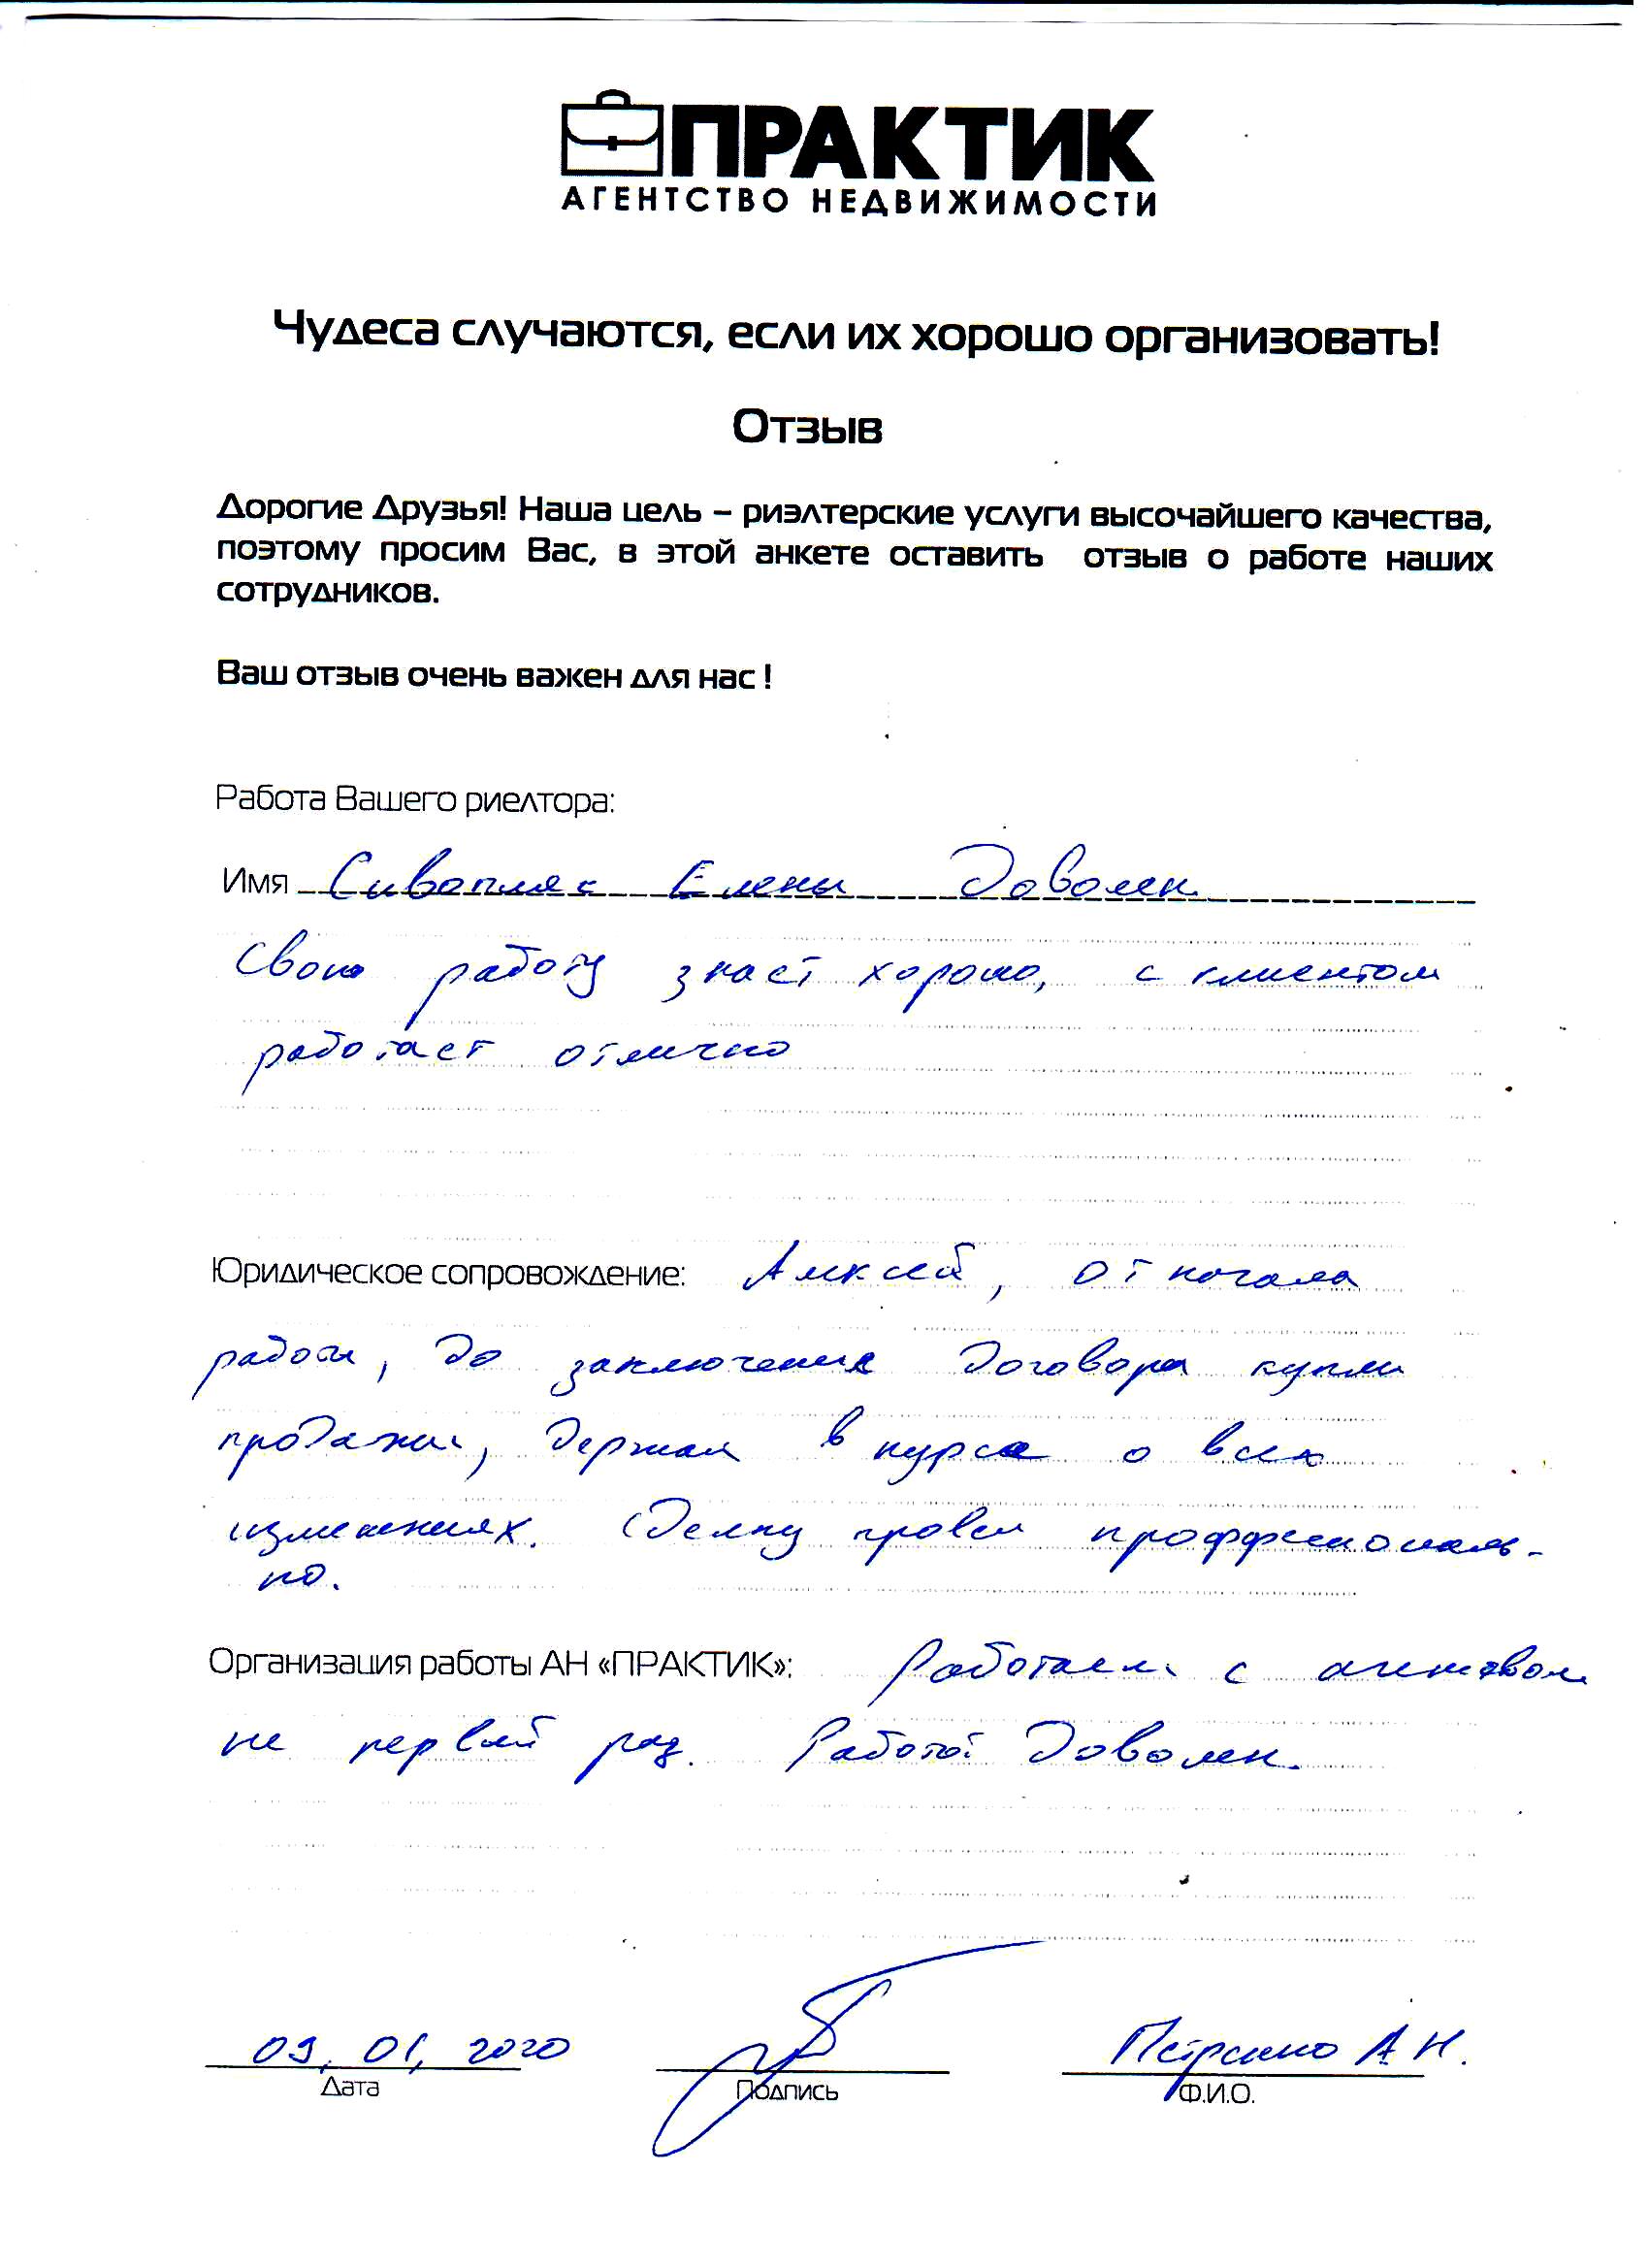 ПРАКТИК
АГЕНТСТВО НЕДВИЖИМОСТИ
Чудеса случаются, если их хорошо организовать!
Отзыв
Дорогие Друзья! Наша цель – риэлтерские услуги высочайшего качества,
поэтому просим Вас, в этой анкете оставить отзыв о работе наших
сотрудников.
Ваш отзыв очень важен для нас !
Работа Вашего риелтора:
Имя Сивопляс Елены Доволен
Свою работу знает хорошо, с клиентом
работает отлично
Юридическое сопровождение: Алексей, от начала
работы, до заключения договора купли
продажи, держал в курсе о всех
изменениях. Сделку провел проффесиональ-
но.
Организация работы АН «ПРАКТИК»: Работаем с агентством
не первый раз. Работой доволен.
09, 01, 2020 А Н.
Дата Подпись Ф.И.О.